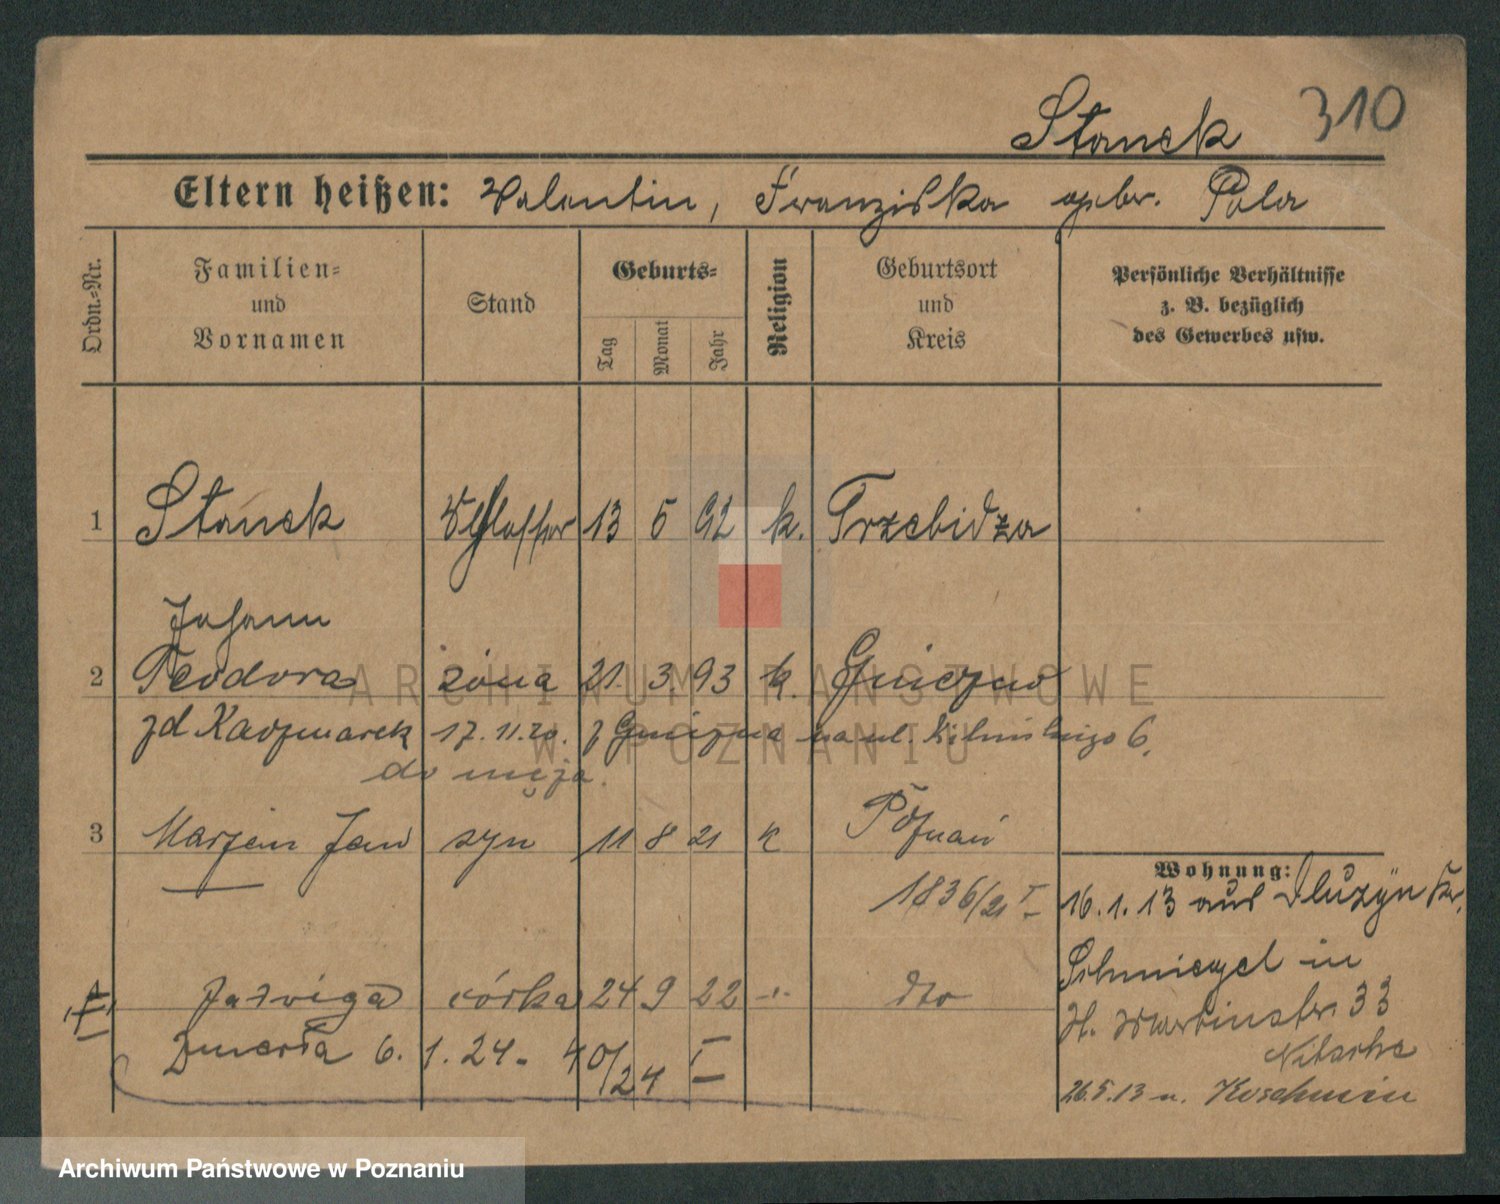 310
Stanek
Eltern heißen: Valentin, Franziska gebr. Pola
Ordn.-Nr.
Familien-
und
Vornamen
Stand
Geburts-
Tag
Monat
Jahr
Religion
Geburtsort
und
Kreis
Persönliche Verhältnisse
z. B. bezüglich
des Gewerbes usw.
1 Stanek Schlosser 13 5 92 k. Trzebidza
Johann
2 Teodora żona 21. 3. 93 k. Gniezno
zd Kaczmarek 17.11.20. z Gniezna na ul. Kilińskiego 6.
do męża.
3 Marjan Jan syn 11 8 21 k Poznań
1836/21 I
Wohnung:
16.1.13 aus Dluzyn Kr.
Schmiegel in
St. Martinstr. 33
Nitsche
26.5.13 n. Koschmin
4 Jadwiga córka 24 9 22 -"- dto
Zmarła 6. 1. 24. 40/24 I
ARCHIWUM PAŃSTWOWE
W POZNANIU
Archiwum Państwowe w Poznaniu